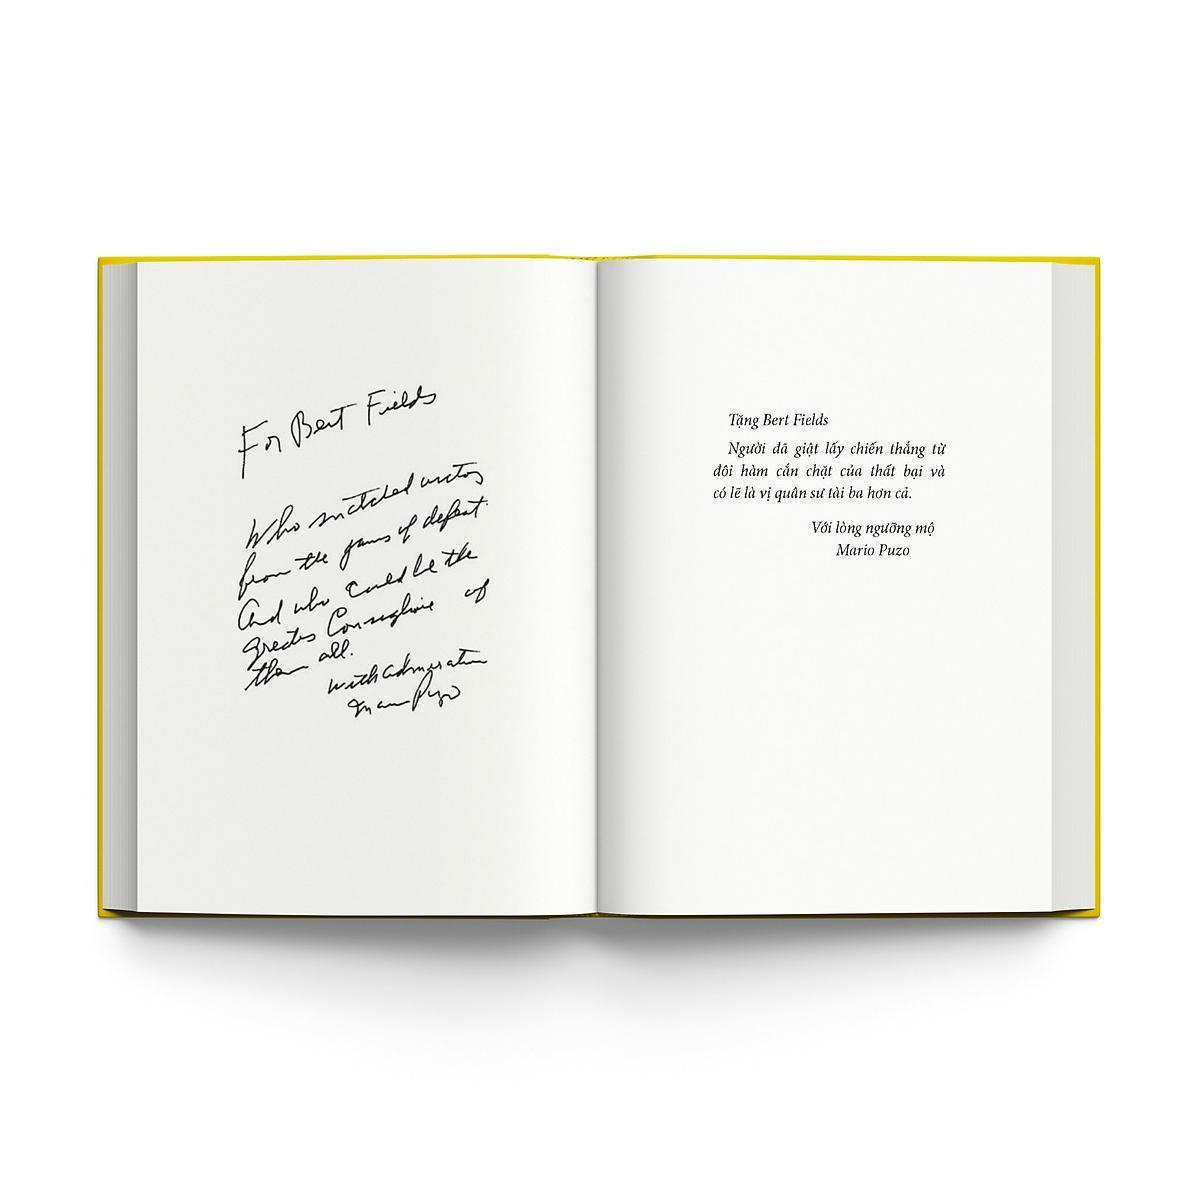 For Bert Fields
Who snatched victory
from the jaws of defeat.
And who could be the
greates Consigliori of
them all.
With admiration
Mario Puzo
Tặng Bert Fields
Người đã giật lấy chiến thắng từ
đôi hàm cắn chặt của thất bại và
có lẽ là vị quân sư tài ba hơn cả.
Với lòng ngưỡng mộ
Mario Puzo